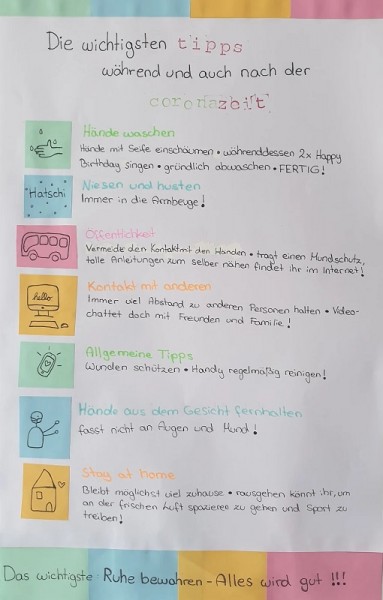 Die wichtigsten tipps
während und auch nach der
coronazeit
Hände waschen
Hände mit Seife einschäumen • währenddessen 2x Happy
Birthday singen • gründlich abwaschen • FERTIG!
Hatschi
Niesen und husten
Immer in die Armbeuge!
Öffentlichkeit
Vermeide den Kontakt mit den Händen • tragt einen Mundschutz,
tolle Anleitungen zum selber nähen findet ihr im Internet!
hello
Kontakt mit anderen
Immer viel Abstand zu anderen Personen halten • Video-
chattet doch mit Freunden und Familie!
Allgemeine Tipps
Wunden schützen • Handy regelmäßig reinigen!
Hände aus dem Gesicht fernhalten
fasst nicht an Augen und Mund!
Stay at home
Bleibt möglichst viel zuhause • rausgehen könnt ihr, um
an der frischen Luft spazieren zu gehen und Sport zu
treiben!
Das wichtigste: Ruhe bewahren - Alles wird gut !!!